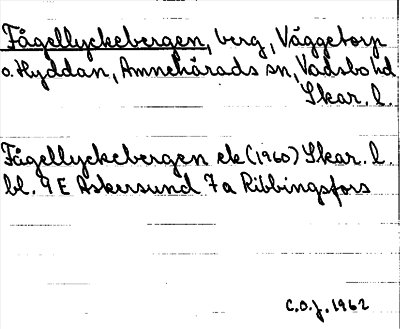 Fågellyckebergen, berg, Väggetorp
o. Hyddan, Amnehärads sn, Vadsbo hd
Skar. l.
Fågellyckebergen ek (1960) Skar. l.
bl. 9 E Askersund 7 a Ribbingsfors
C.O.J. 1962